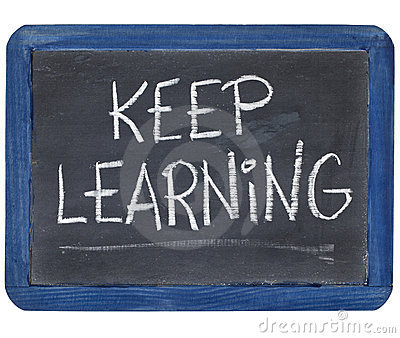 KEEP
LEARNiNG
dreamstime